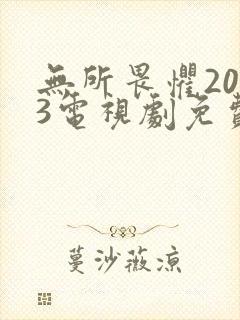 無所畏懼20
3電視劇免
蔓沙薇涼